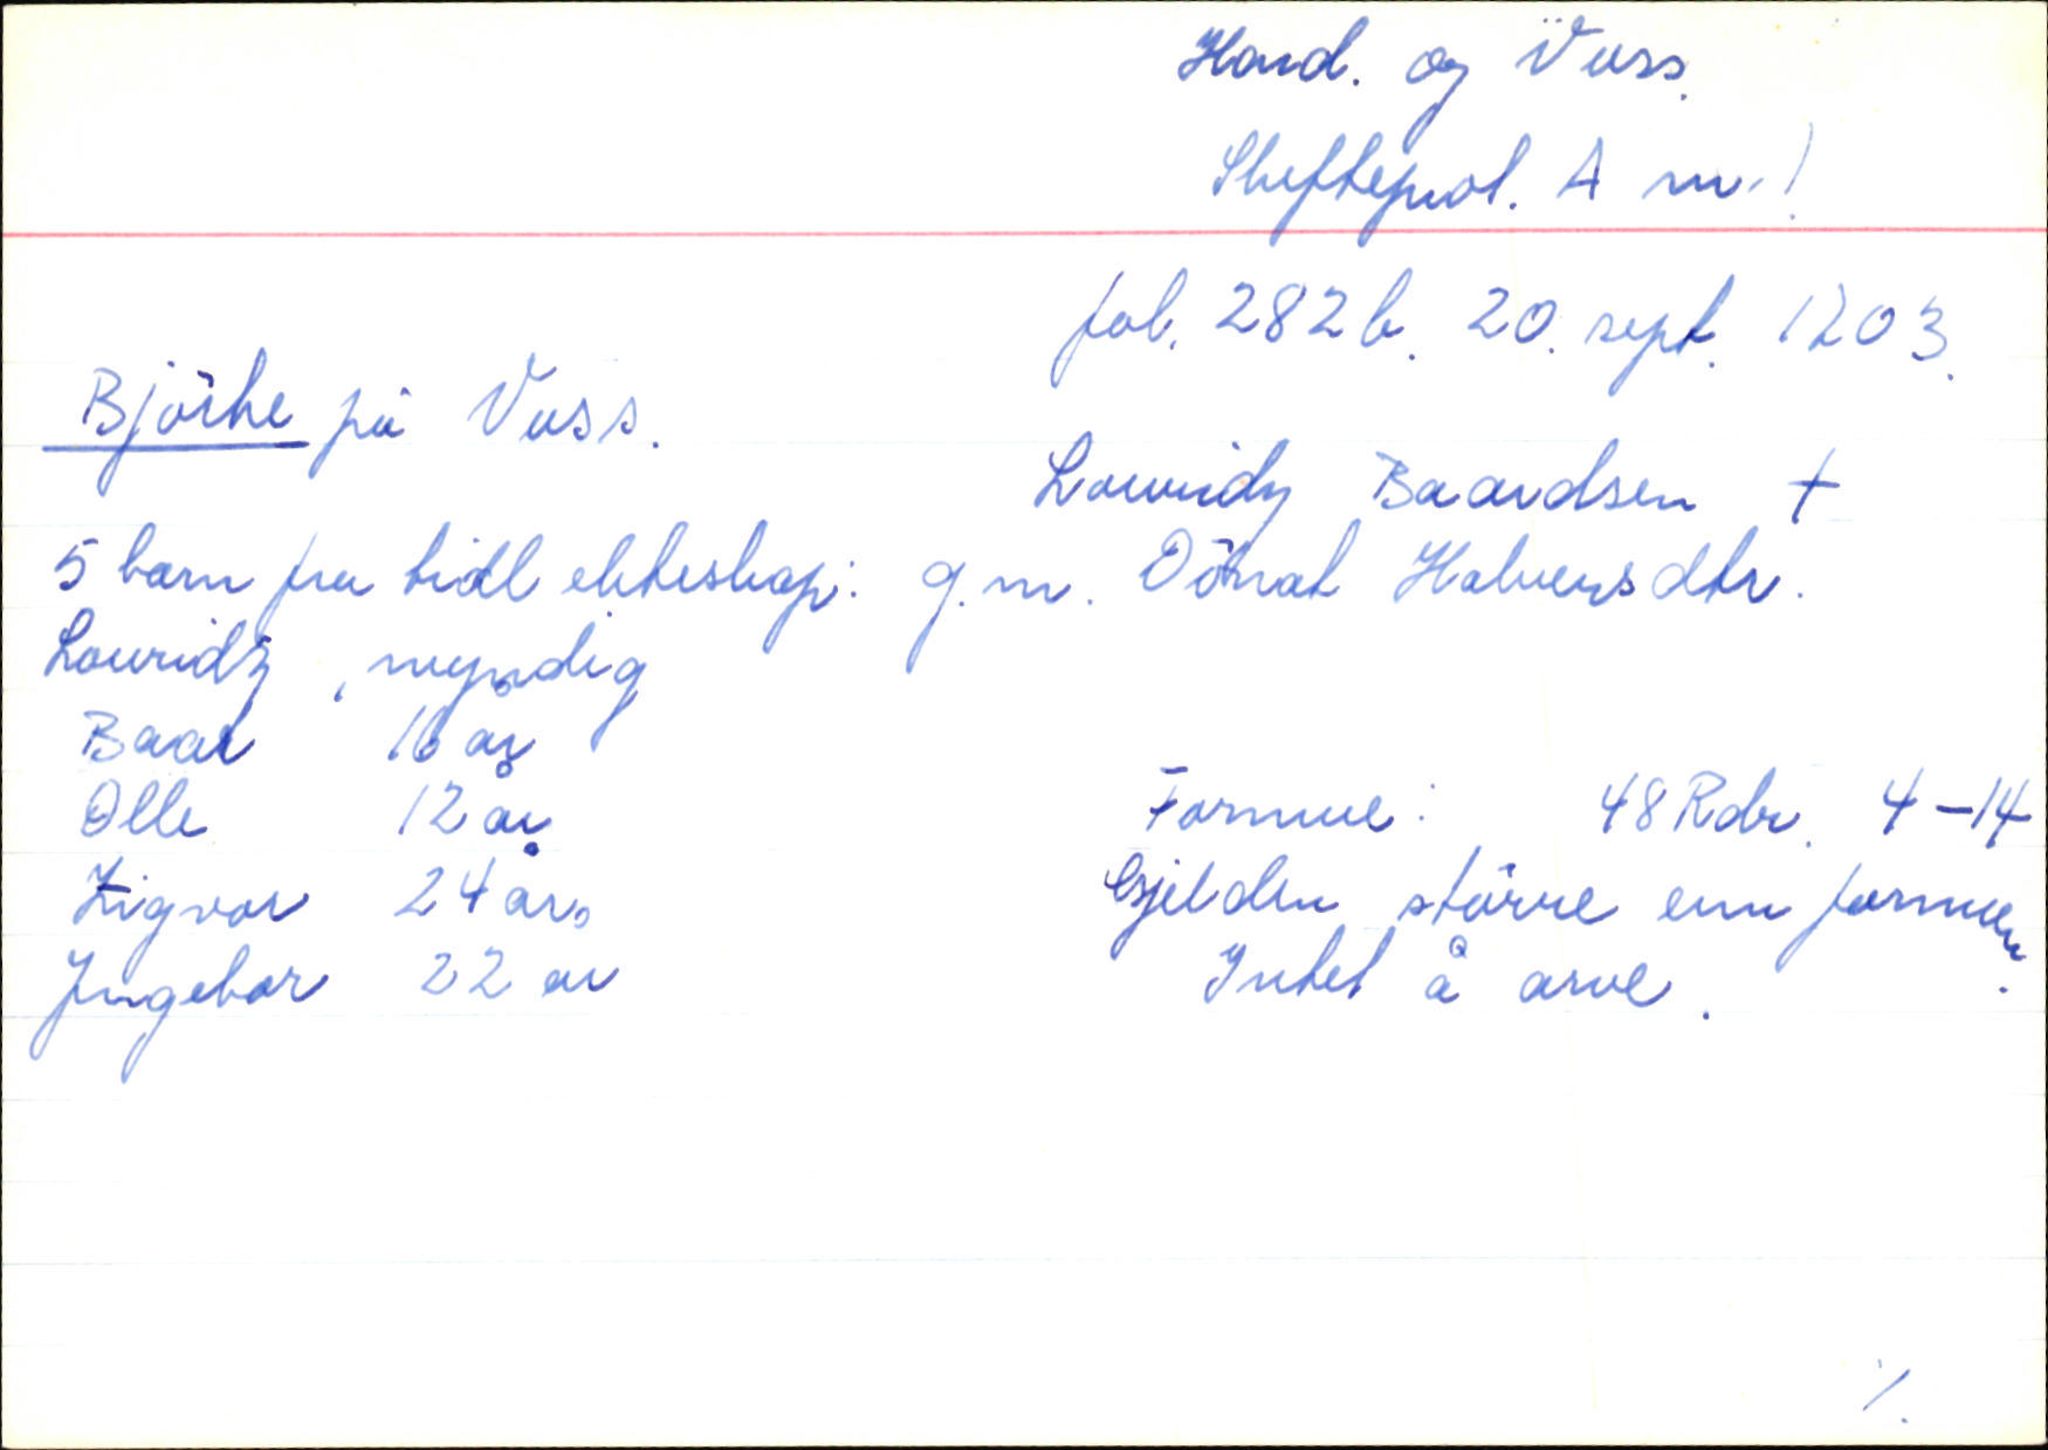 Hard. og Voss.
Skifteprot. A nr. 1
fol. 282b. 20. sept. 1703.
Björke på Voss.
Lauridz Baardsen †
5 barn fra tidl ekteskap: g.m. Dönat Halversdtr.
Lauridz, myndig
Baar 16 år
Olle 12 år
Zigvor 24 år
Ingebor 22 år
Formue: 48 Rdr. 4-14
Gjelden större enn formuen.
Intet å arve.